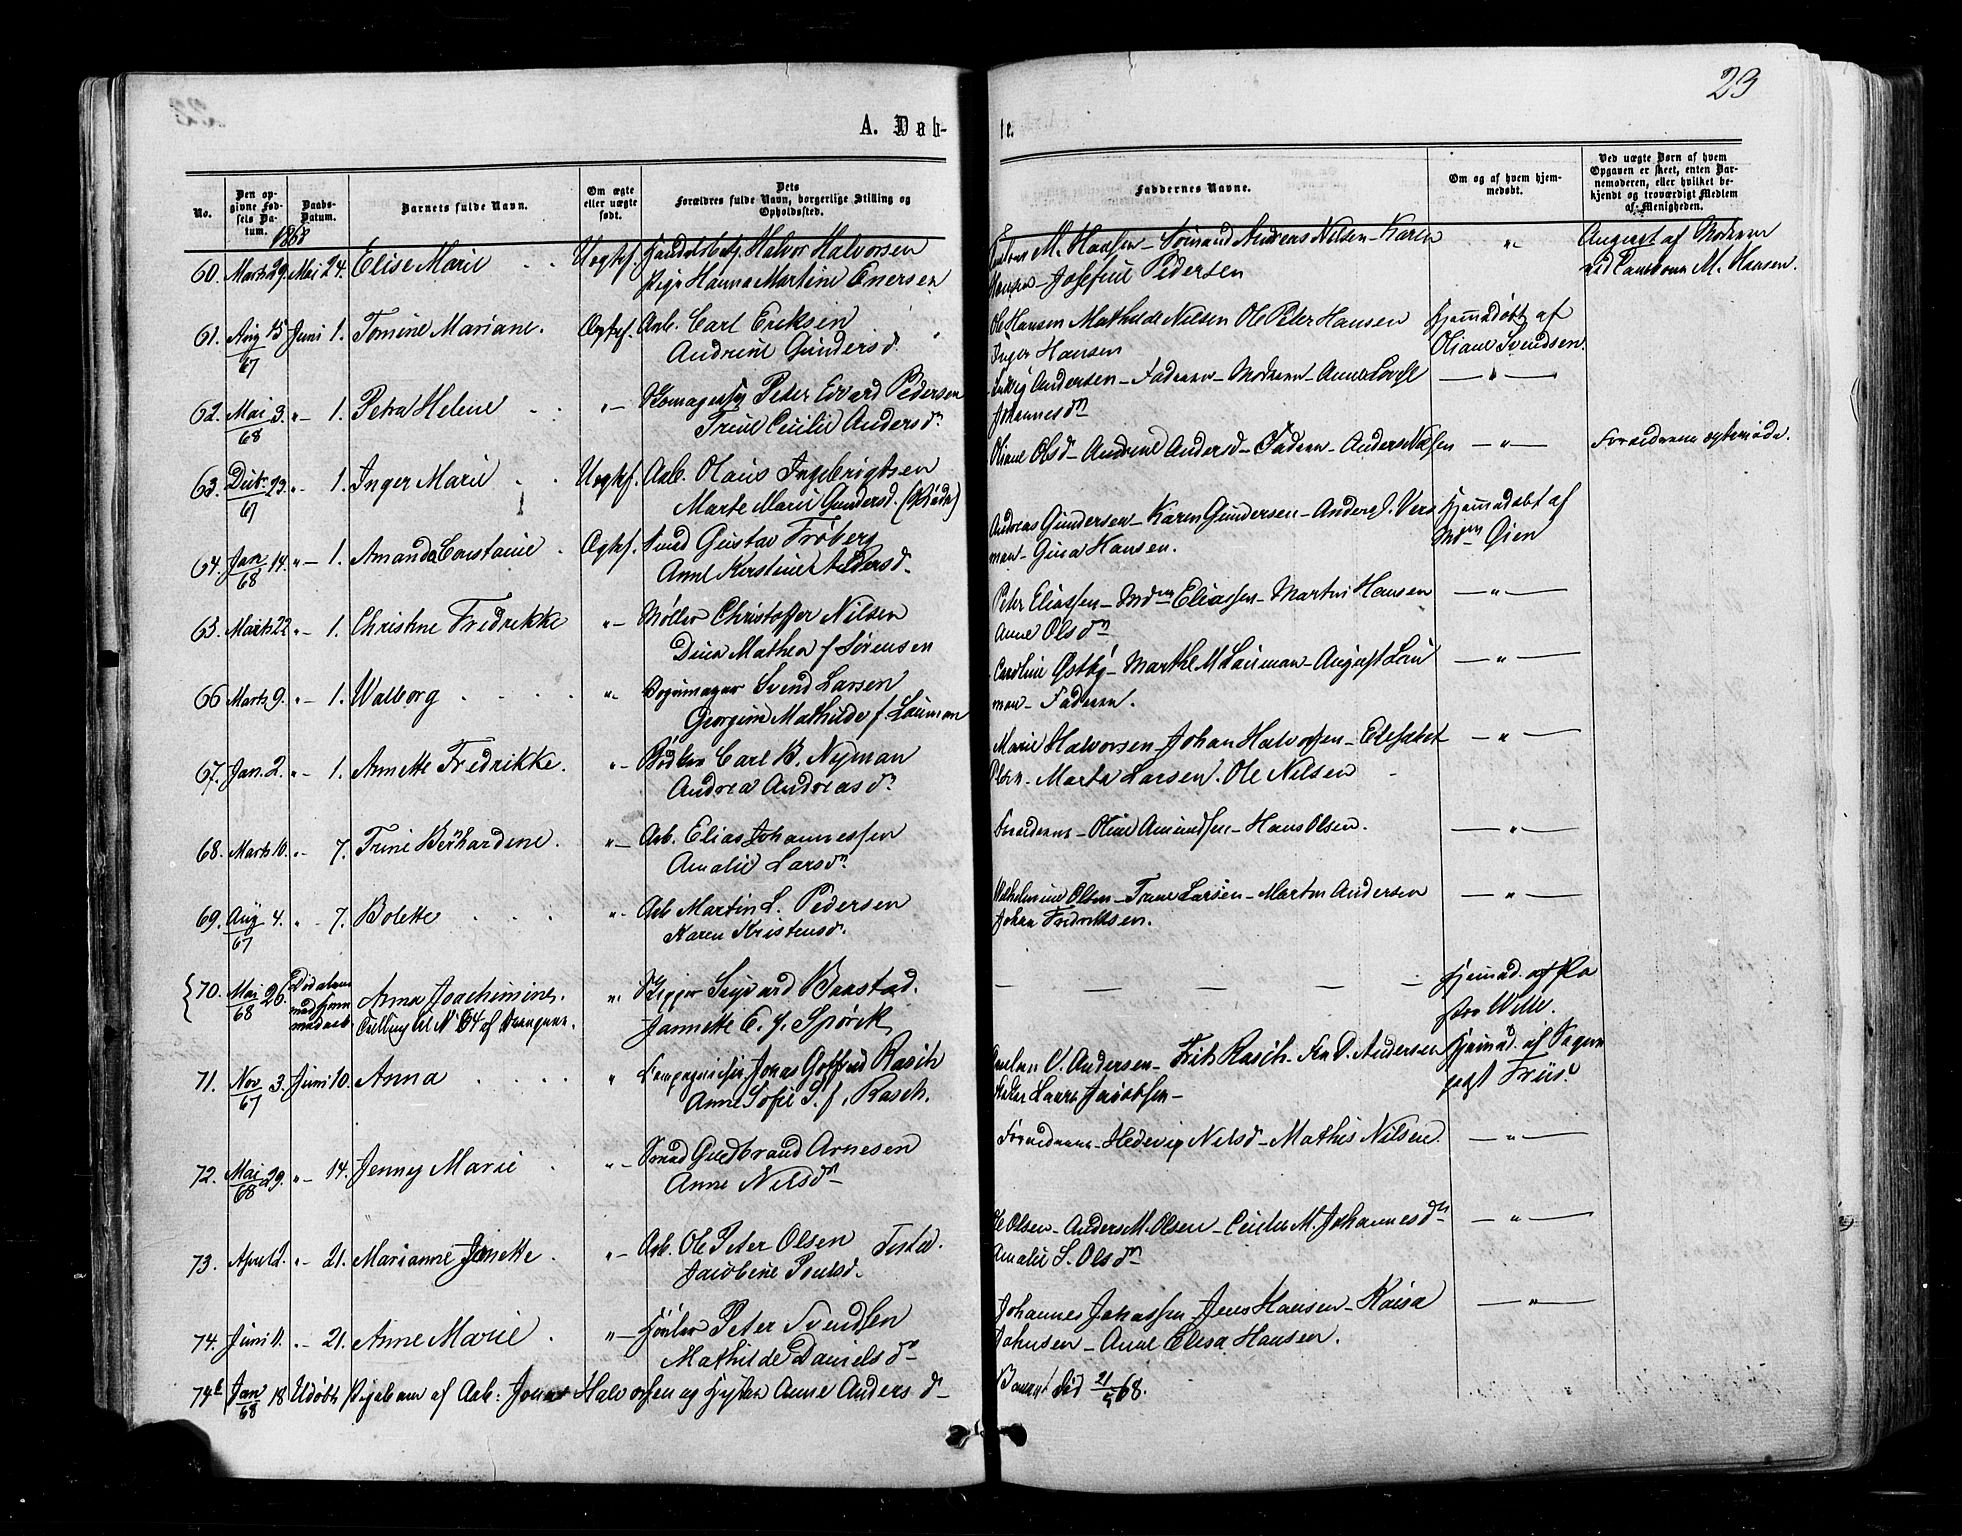 23
A. Døb-
te.
No.
Den opgivne Fødsels Datum.
Daabs-Datum.
Barnets fulde Navn.
Om ægte eller uægte født.
Dets Forældres fulde Navn, borgerlige Stilling og Opholdssted.
Faddernes Navne.
Om og af hvem hjemmedøbt.
Ved uægte Børn af hvem Opgaven er skeet, enten Barnemoderen, eller hvilket bekjendt og troværdigt Medlem af Menigheden.
1868
60. Marts 29. Mai 24. Elise Marie Uægtef. Halvor Halvorsen
Pige Hanna Martine Enersen
M. Hansen – Sømand Andreas Nilsen – Karen
Hansen – Josefine Pedersen
" Angivet af Moderen
ved M. Hansen.
61. Aug 15/67 Juni 1. Tomine Mariane. Ægtef. Arb. Carl Eriksen
Andrine Gundersd.
Ole Hansen Mathilde Nilsen Ole Peter Hansen
Inger Hansen
Hjemmedøbt af
Oliane Svendsen.
62. Mai 3./68 "– 1. Petra Helene "– Peter Edvard Pedersen
Trine Cecilie Andersdn
Ludvig Andersen – Faderen – Moderen – Anne Lovise
Johannesdn
— " —
63. Dcbr. 23./67 "– 1. Inger Marie Uægtef. Arb. Olaus Ingebrigtsen
Marte Marie Gundersd.
Oliane Olsd – Andrine Andersd – Faderen – Anders Nilsen
— " — Forældrene
64. Jan 14./68 "– 1. Amanda Constance Ægtef. Smed Gustav Frøberg
Anne Kerstine Andersd.
Andreas Gundersen – Karen Gundersen – Anders J. Vers
man – Gina Hansen.
Hjemmedøbt af
Mdm Gien
65. Marts 22 "– 1. Christine Fredrikke "– Møller Christoffer Nilsen
Dina Mathea f Sørensen
Peter Eliassen – Mdm Eliassen – Martin Hansen
Anne Olsdn
— " —
66 Marts 9. "– 1. Walborg "– Bøssemager Svend Larsen
Georgine Mathilde f Lauman
Caroline Østby – Marthe M Lauman – August Lau
man – Faderen.
— " —
67. Jan. 2. "– 1. Annette Fredrikke. "– Bødker Carl B. Nyman
Andrea Andreasdn
Marie Halvorsen – Johan Halvorsen – Elisabet
Olsen – Marta Larsen. Ole Nilsen
– " —
68. Marts 10. "– 7. Trine Bernhardine. "– Arb. Elias Johannessen
Amalie Larsdn
Forældrene – Oline Amundsen – Hans Olsen.
— " —
69. Aug 4./67 "– 7. Bolette "– Arb Martin L. Pedersen
Karen Kristensd.
Wilhelmine Olsen – Trine Larsen – Martin Andersen
Johan Fredriksen.
— " —
70. Mai 26./68 Anna Joachimine. "– Skipper Sigvard Baastad.
Tvilling til No 54 af Drengene.
Jannette E. f. Spørck
— — — — —
Hjemmed. af Pa
stor Wille.
71. Nov 3./67 Juni 10. Anna " Jonas Gotfred Rasch
Anne Sofie S. f. Rasch.
C. Andersen – Frits Rasch – D. Andersen
Laura Jacobsen –
Hjemmed. af Sogne
præst Friis.
72. Mai 29./68 "– 14. Jenny Marie "– Smed Gudbrand Arnesen
Anne Nilsdn
Forældrene – Hedevig Nilsd – Mathis Nilsen.
— " —
73. April 2. "– 21. Marianne Janette. "– Arb. Ole Peter Olsen Tista.
Jacobine Poulsd.
Ole Olsen – Anders M. Olsen – Cecilie M. Johannesdn
Amalie S. Olsdn
— " —
74. Juni 11. "– 21. Anne Marie "– Peter Svendsen
Mathilde Danielsdn
Johannes Johassen Jens Hansen – Kaisa
Johnsen – Anne Elisa Hansen.
— " —
74b Jan 18/68 Udøbt Pigebarn af Arb: Jonas Halvorsen og Hustru Anne Andersd –
Barnet død 21/5 68.